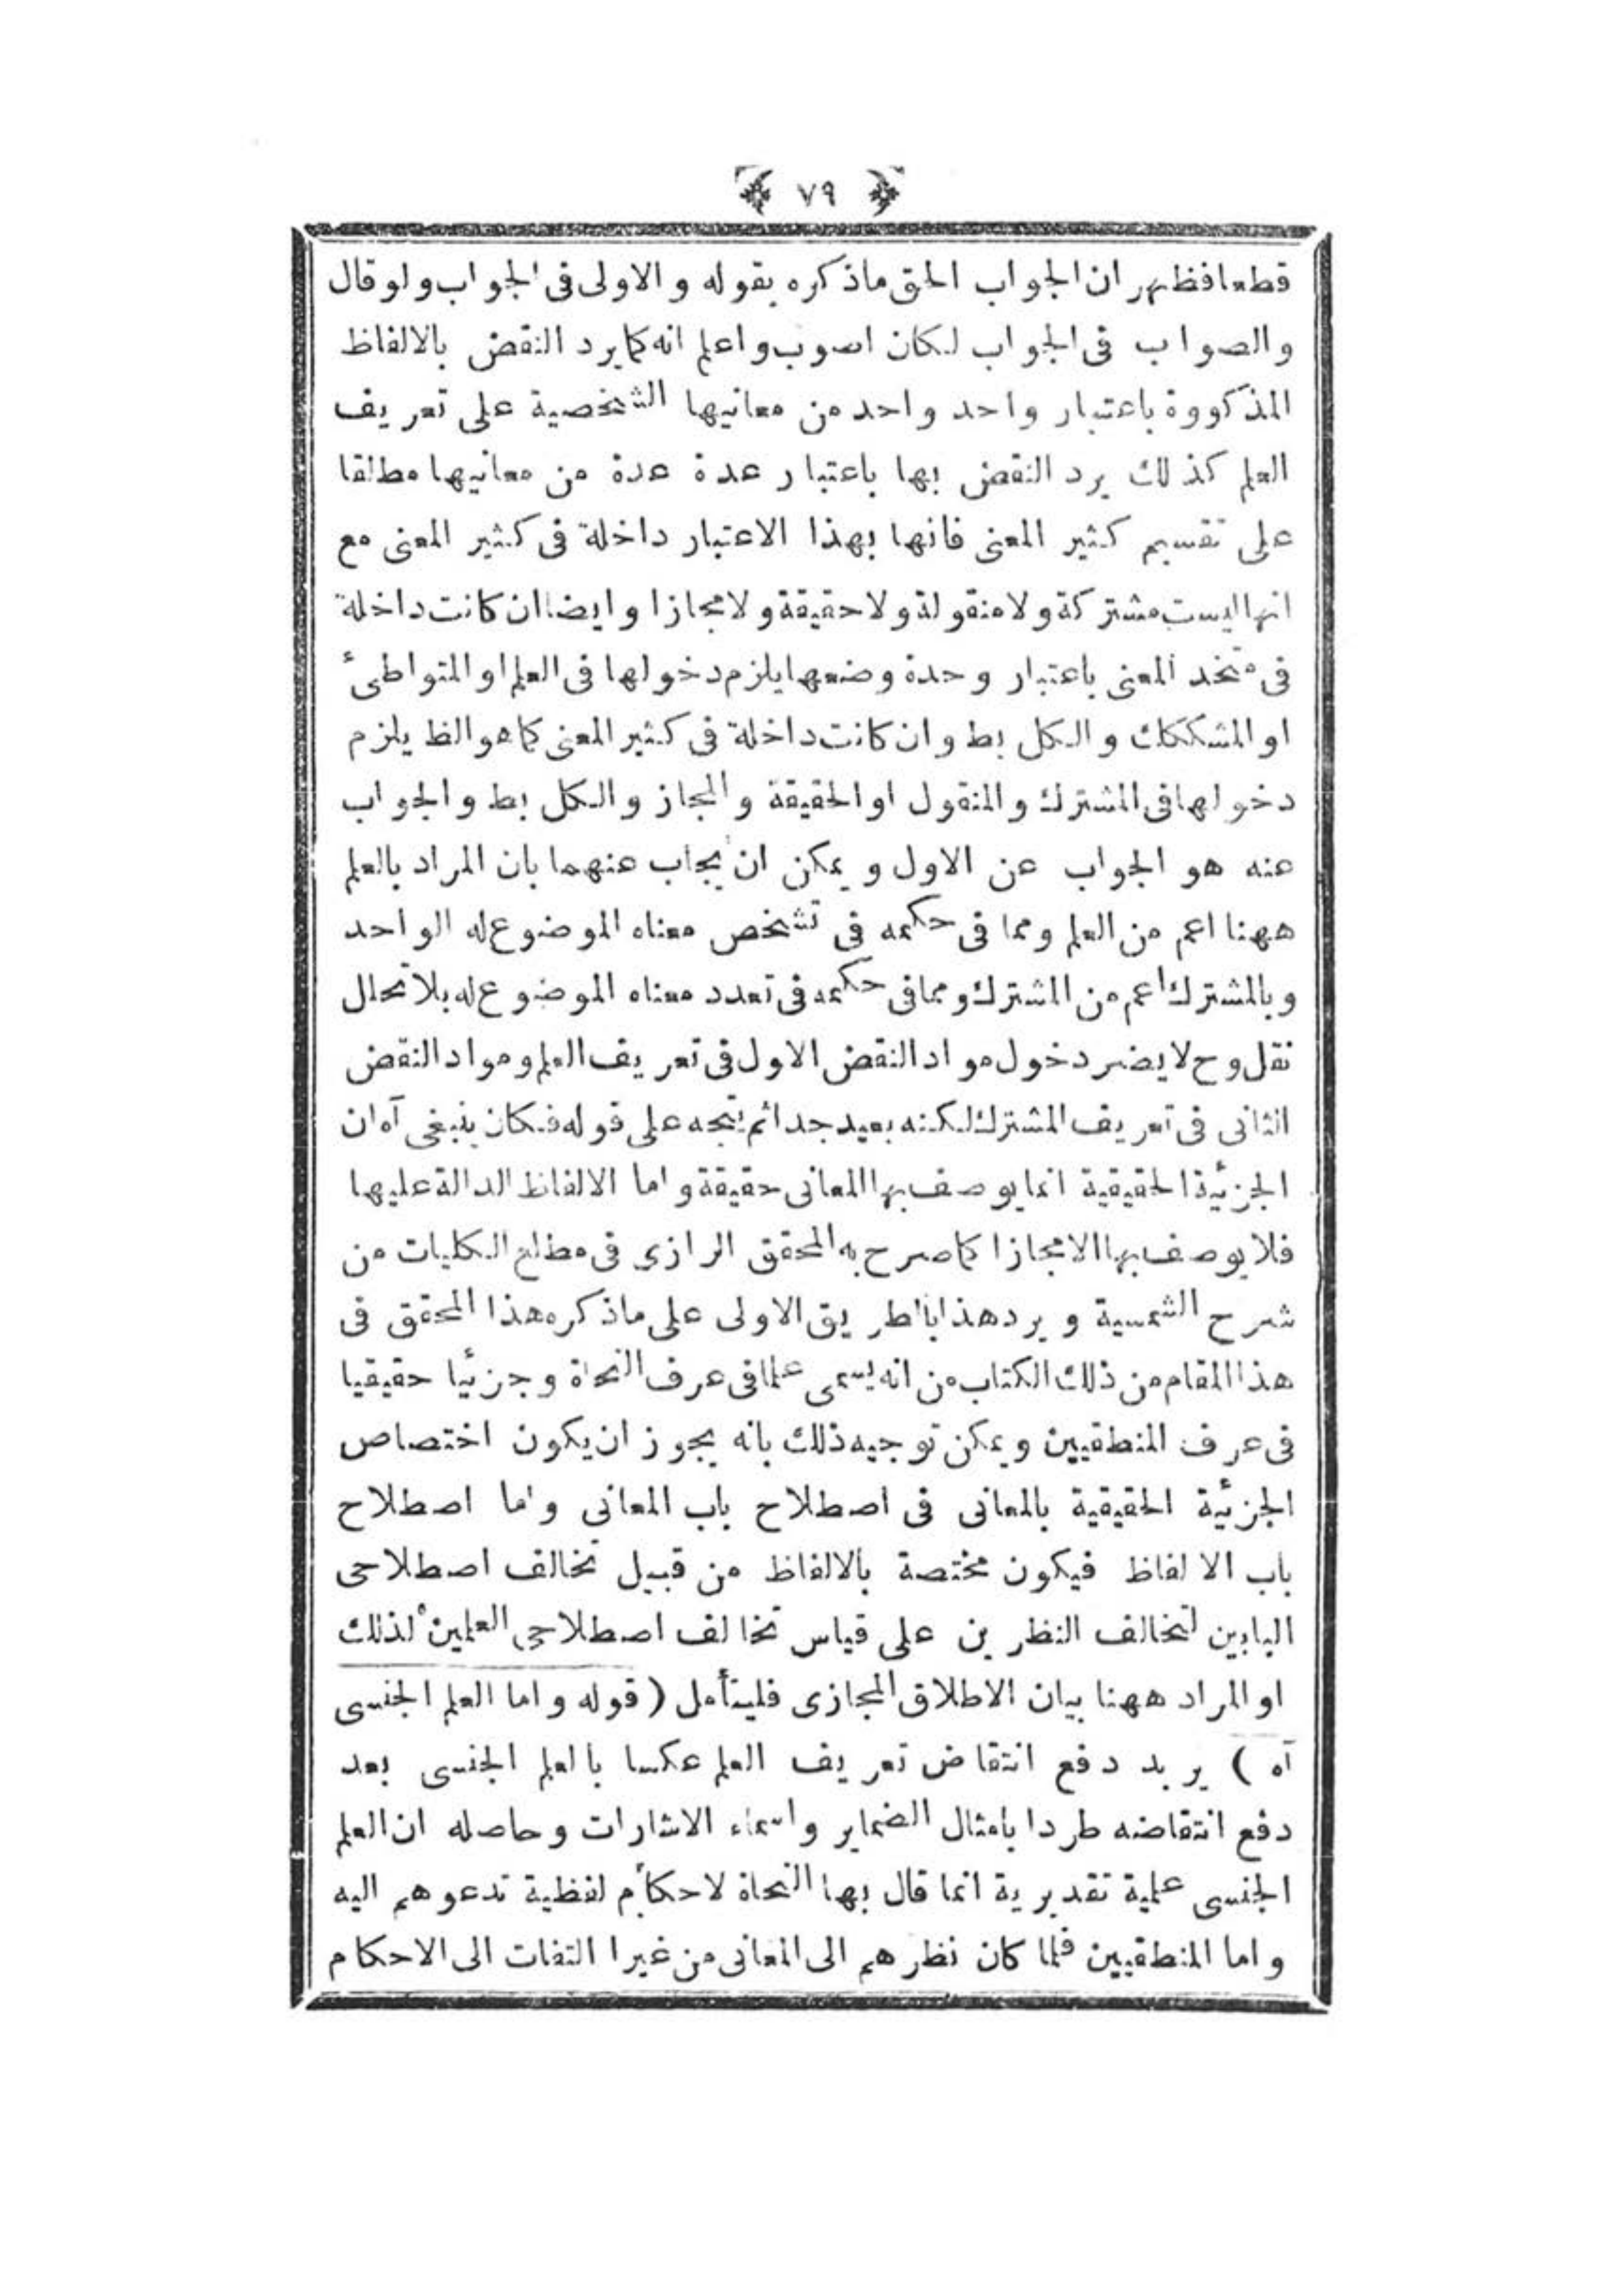 ﴿ ٧٩ ﴾
قطعا فظهر ان الجواب الحق ماذكره بقوله والاولى فى الجواب ولو قال
والصواب فى الجواب لكان اصوب واعلم انه كما يرد النقض بالالفاظ
المذكووة باعتبار واحد واحد من معانيها الشخصية على تعريف
العلم كذلك يرد النقض بها باعتبار عدة عدة من معانيها مطلقا
على تقسيم كثير المعنى فانها بهذا الاعتبار داخلة فى كثير المعنى مع
انها ليست مشتركة ولا منقولة ولا حقيقة ولا مجازا وايضا ان كانت داخلة
فى متحد المعنى باعتبار وحدة وضعها يلزم دخولها فى العلم او المتواطئ
او المشككات والكل بط وان كانت داخلة فى كثير المعنى كما هو الظ يلزم
دخولها فى المشترك والمنقول او الحقيقة والمجاز والكل بط والجواب
عنه هو الجواب عن الاول ويمكن ان يجاب عنهما بان المراد بالعلم
ههنا اعم من العلم ومما فى حكمه فى تشخص معناه الموضوع له الواحد
وبالمشترك اعم من المشترك ومما فى حكمه فى تعدد معناه الموضوع له بلا تخلل
نقل وح لا يضر دخول مواد النقض الاول فى تعريف العلم ومواد النقض
الثانى فى تعريف المشترك لكنه بعيد جدا ثم يتجه على قوله فكان ينبغى آه ان
الجزئية الحقيقية انما يوصف بها المعانى حقيقة واما الالفاظ الدالة عليها
فلا يوصف بها الا مجازا كما صرح به المحقق الرازى فى مطلع الكليات من
شرح الشمسية ويرد هذا بالطريق الاولى على ماذكره هذا المحقق فى
هذا المقام من ذلك الكتاب من انه يسمى علما فى عرف النحاة وجزئيا حقيقيا
فى عرف المنطقيين ويمكن توجيه ذلك بانه يجوز ان يكون اختصاص
الجزئية الحقيقية بالمعانى فى اصطلاح باب المعانى واما اصطلاح
باب الالفاظ فيكون مختصة بالالفاظ من قبيل تخالف اصطلاحى
البابين لتخالف النظرين على قياس تخالف اصطلاحى العلمين لذلك
او المراد ههنا بيان الاطلاق المجازى فليتأمل (قوله واما العلم الجنسى
آه) يريد دفع انتقاض تعريف العلم عكسا بالعلم الجنسى بعد
دفع انتقاضه طردا بامثال الضماير واسماء الاشارات وحاصله ان العلم
الجنسى علمية تقديرية انما قال بها النحاة لاحكام لفظية تدعوهم اليه
واما المنطقيين فلما كان نظرهم الى المعانى من غير التفات الى الاحكام